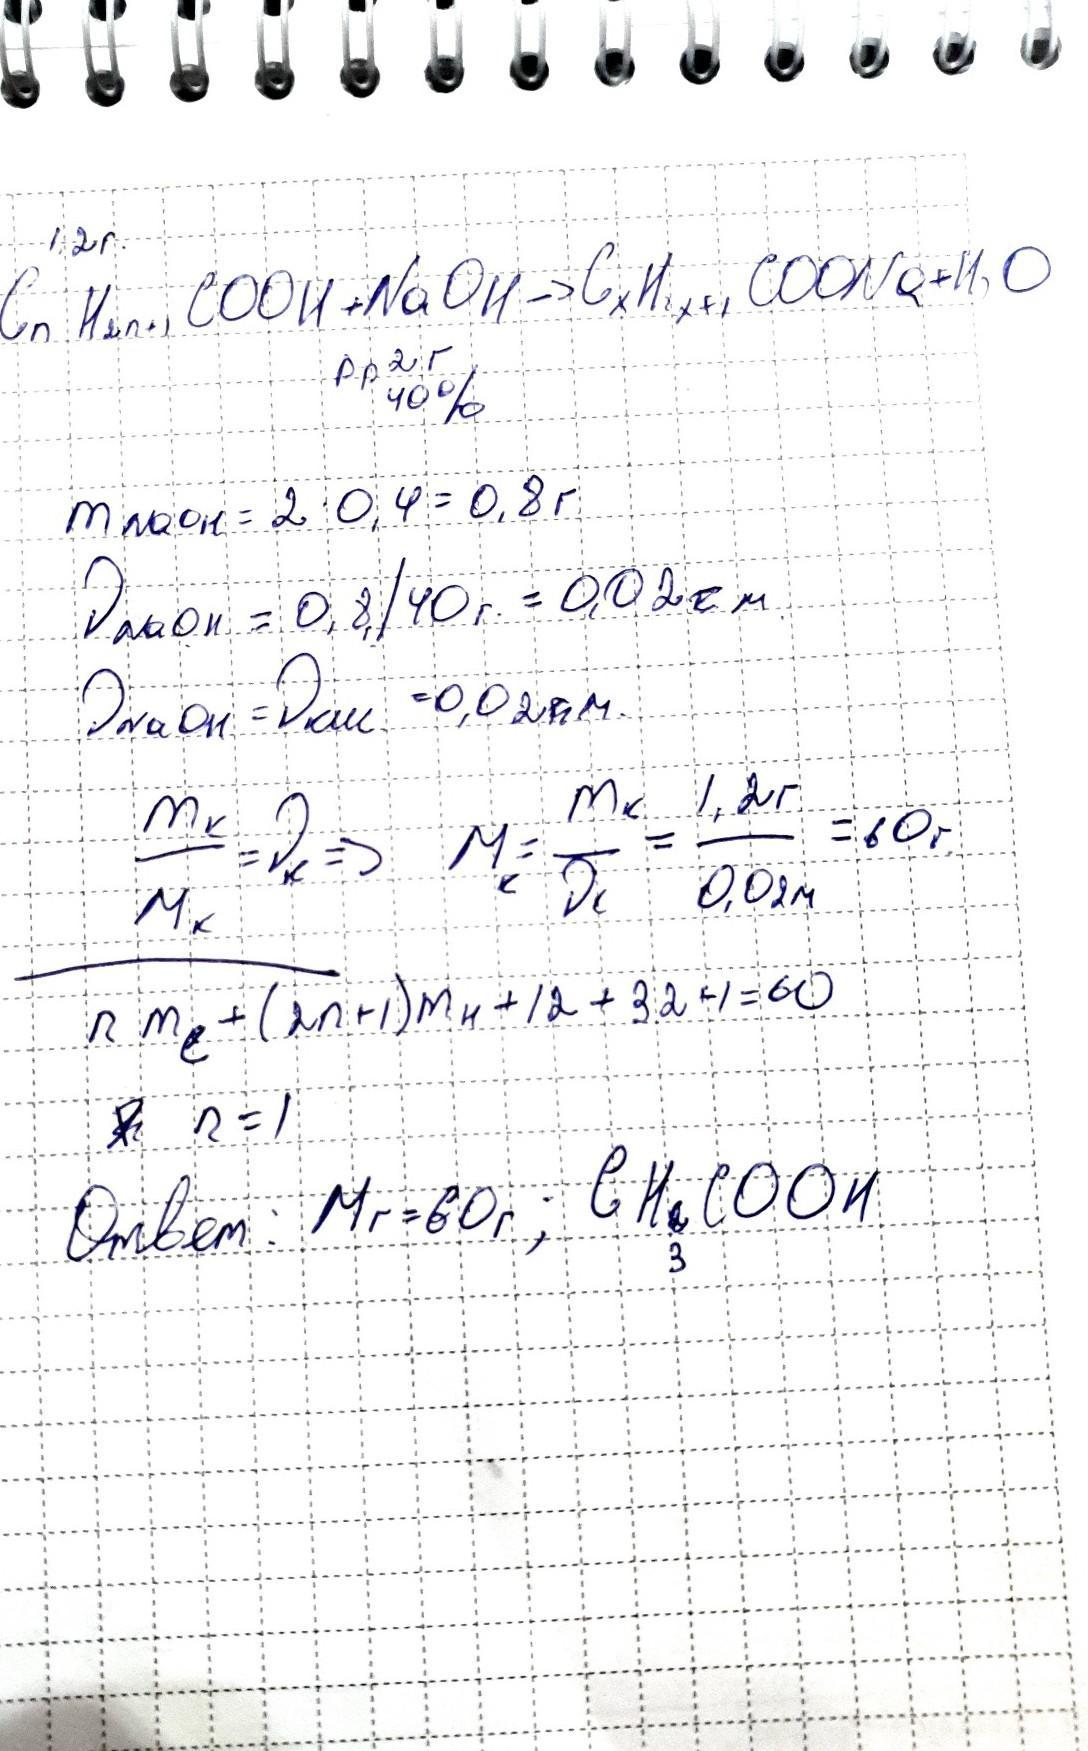 1,2г.
CnH2n+1COOH+NaOH->CxH2x+1COONa+H2O
рр 2г
40%
mNaOH=2·0,4=0,8г
νNaOH=0,8/40г.=0,02 м.
νNaOH=νкис=0,02 м.
mк/Mк=νк=> Mк=mк/νк=1,2г/0,02м=60г.
n mc+(2n+1)mH+12+32+1=60
n=1
Ответ: Mr=60г; CH3COOH